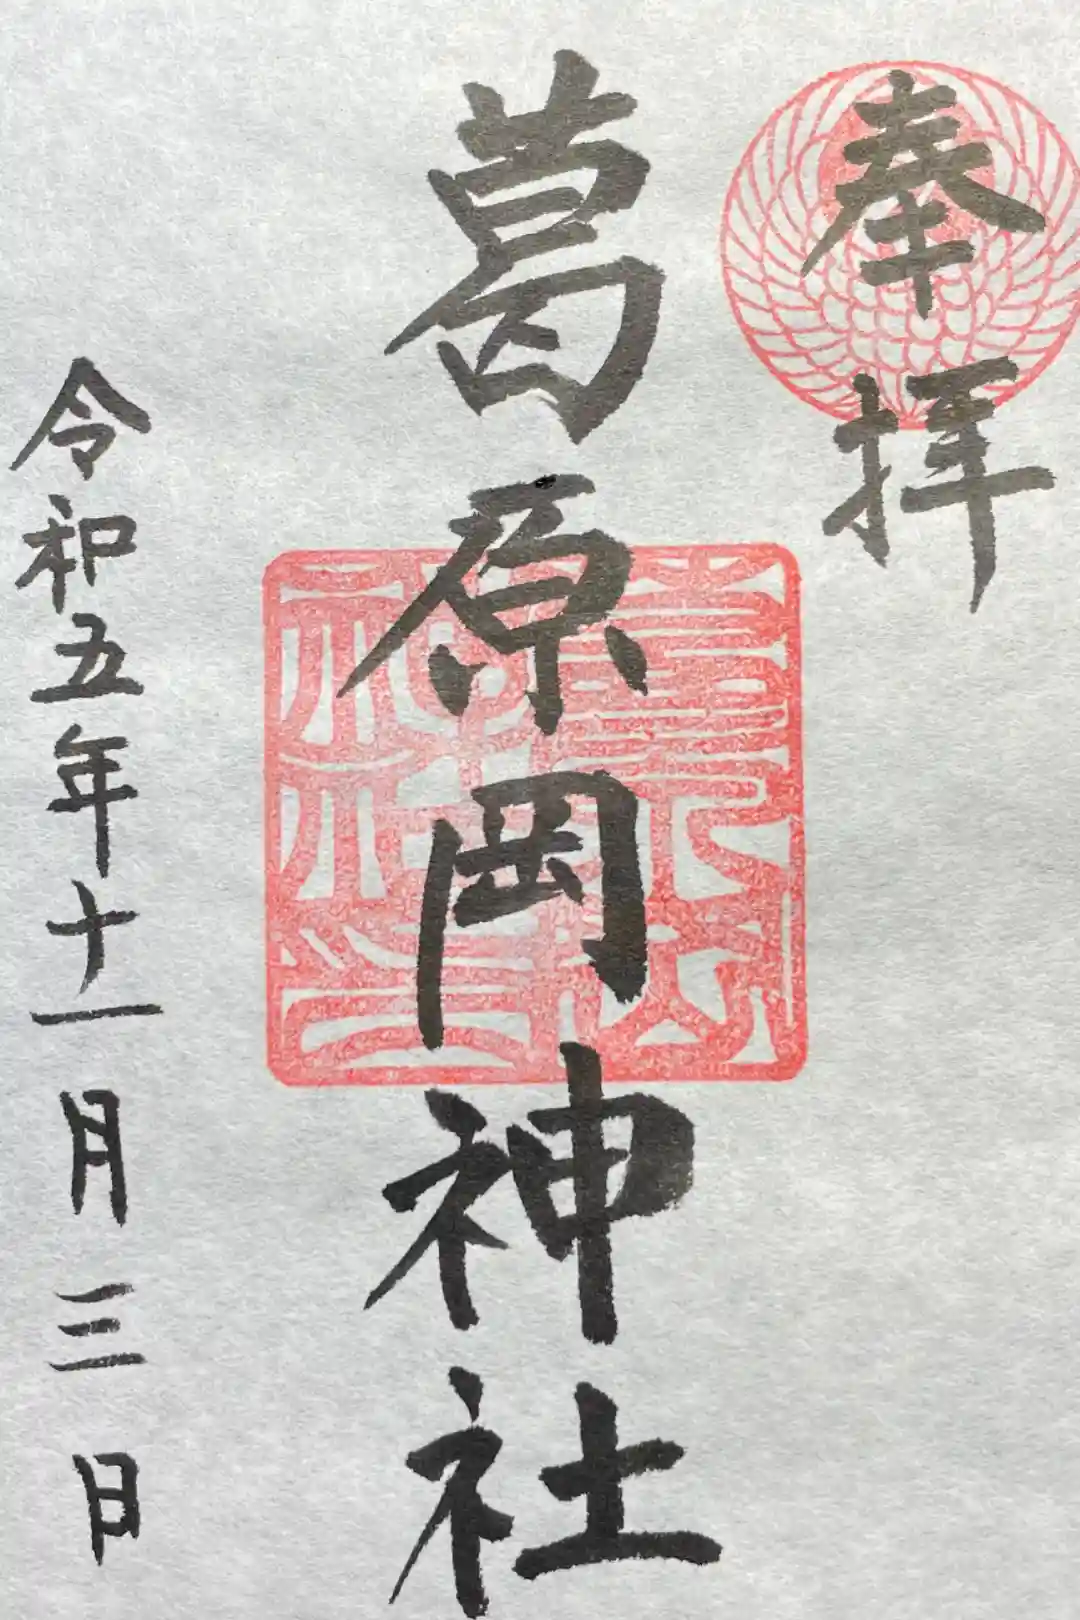 奉拝
葛原岡神社
令和五年十一月三日